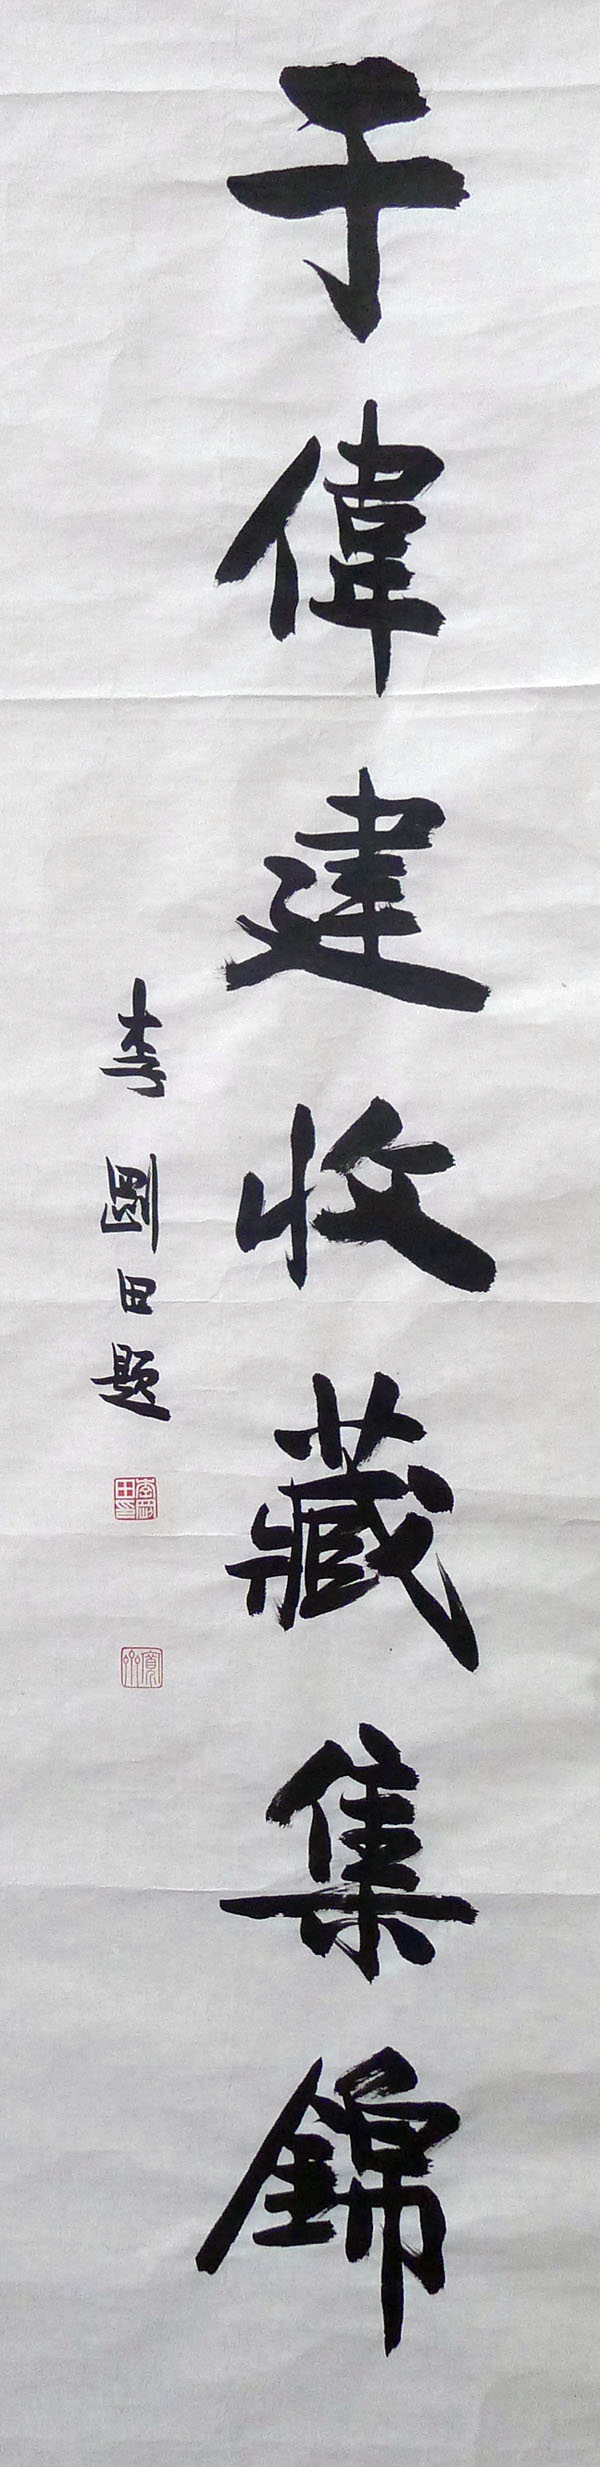 于偉建收藏集錦
李圖田題